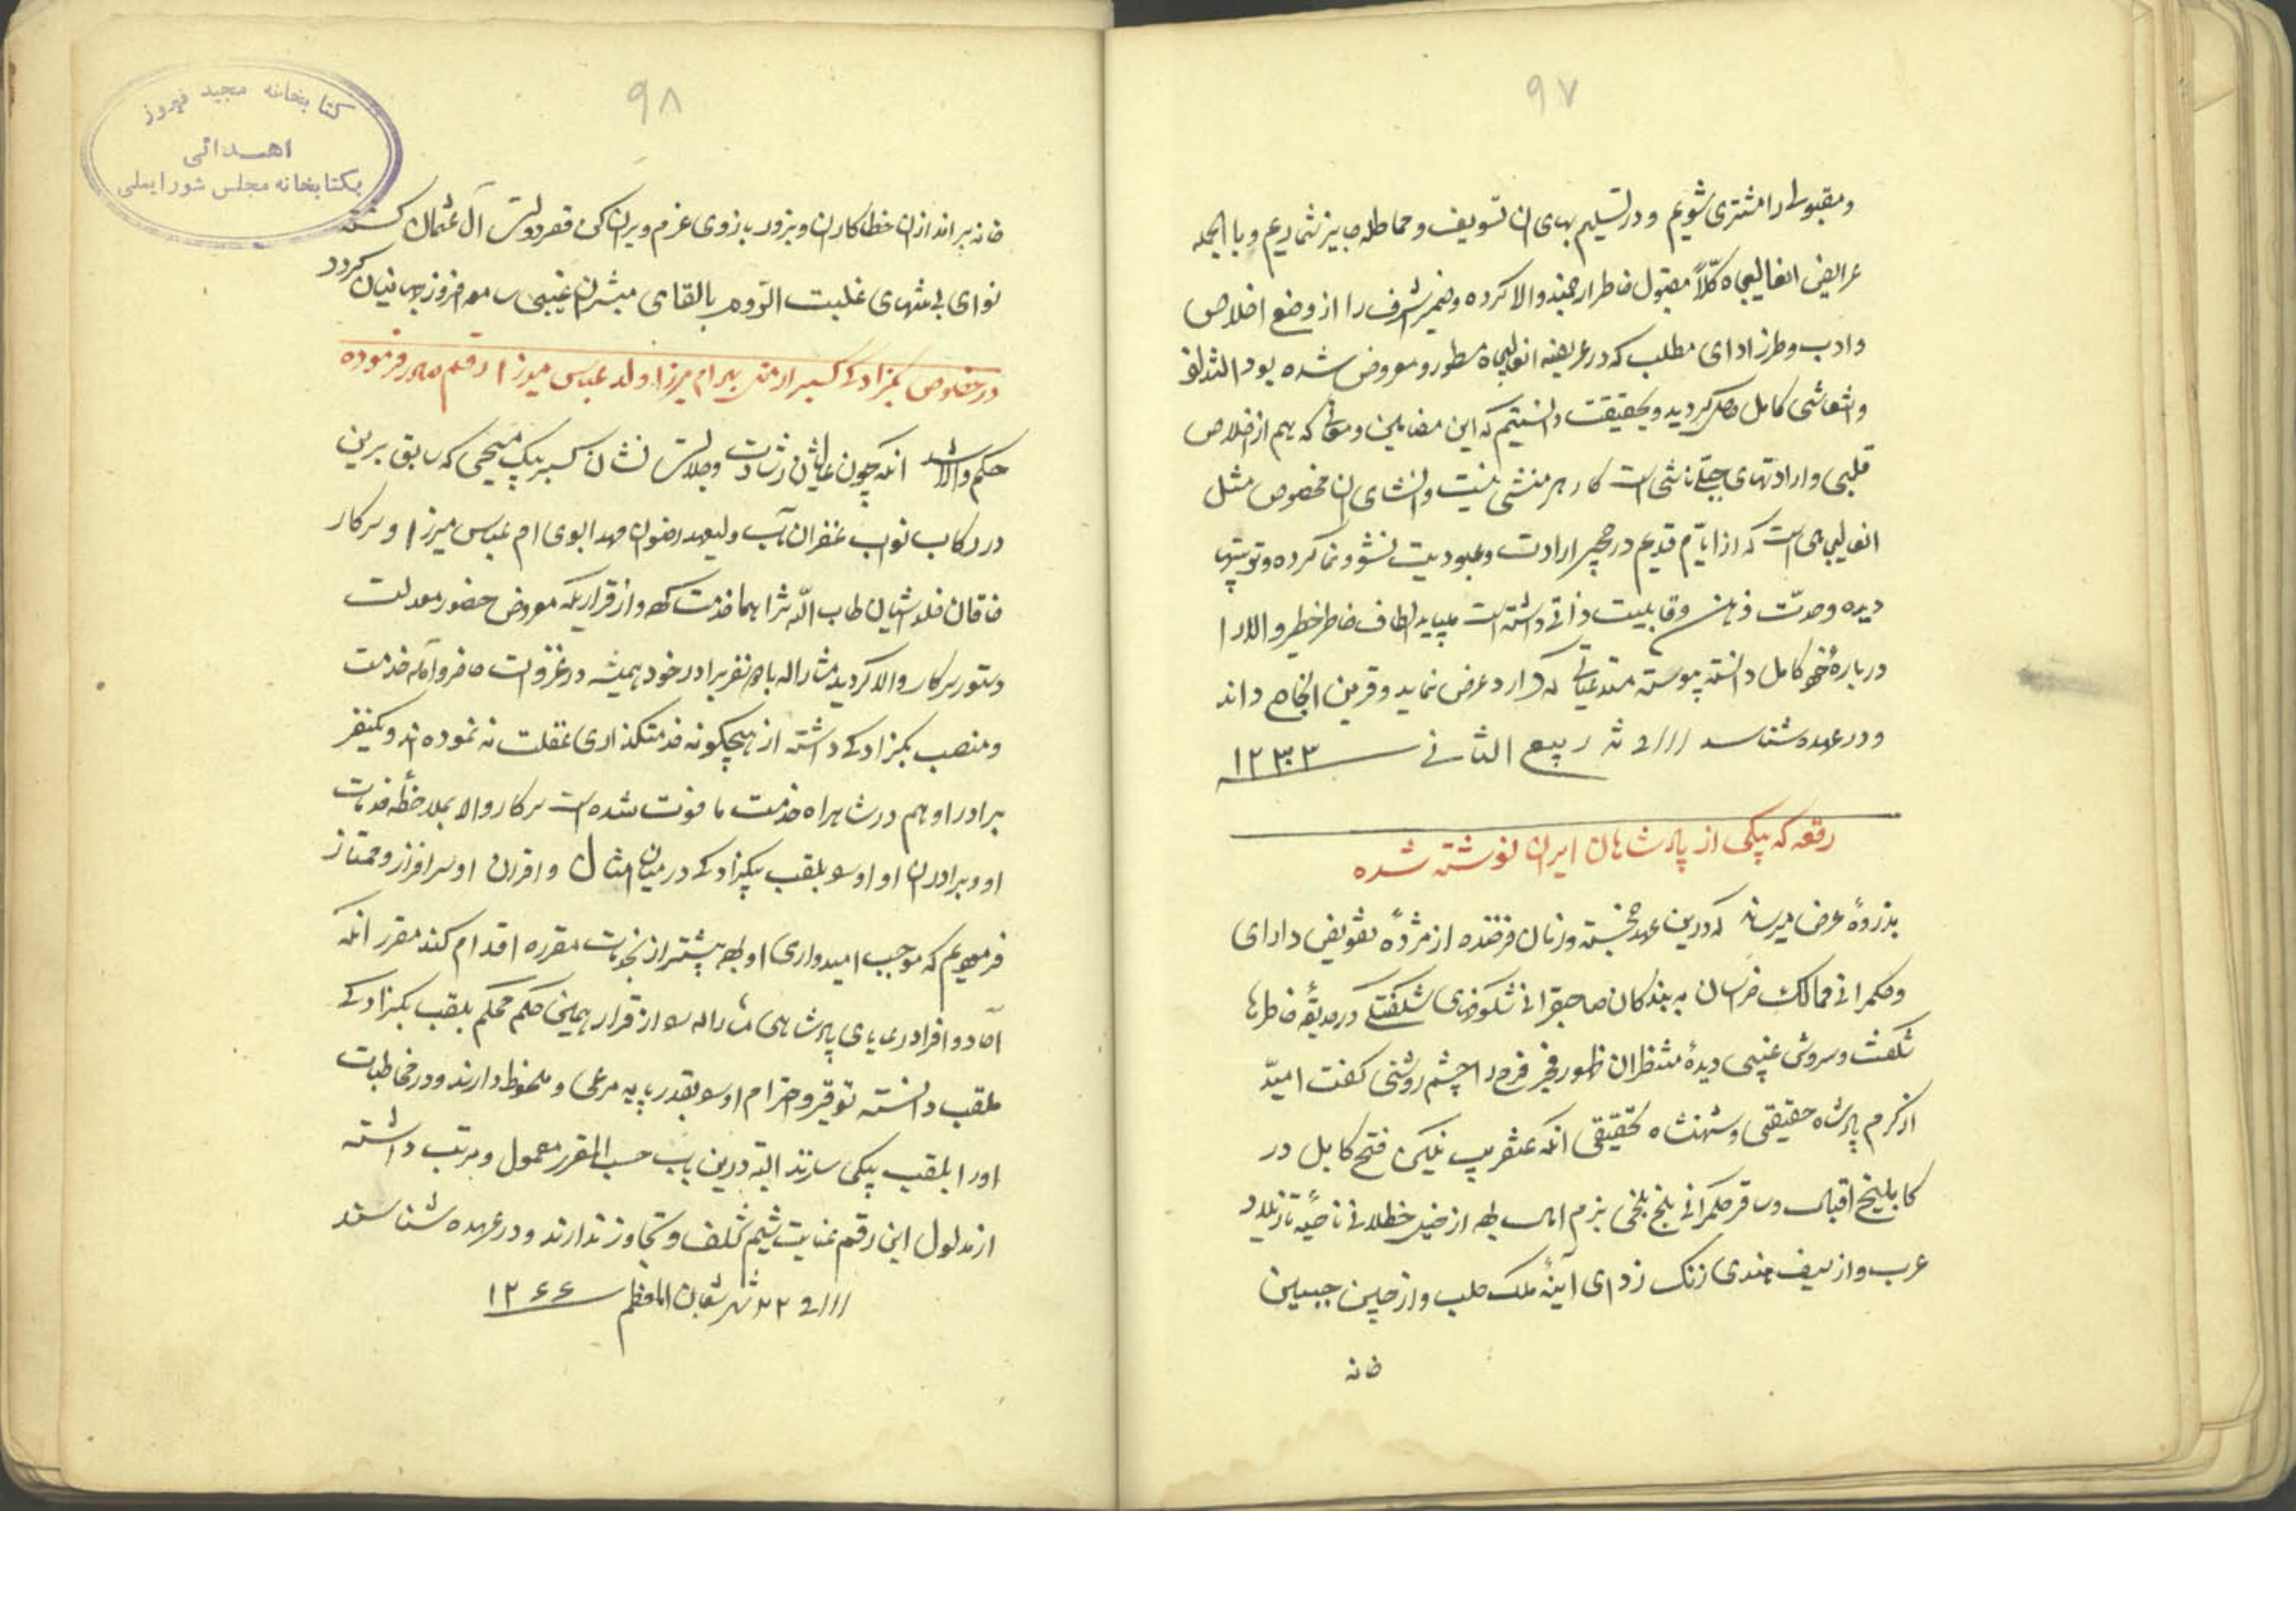 ۹۷
و مقبولی را مشتری شویم و در تسلیم بهای ان تسویف و مماطله جایز نشماریم و بالجمله
عرایض انعالیجاه کلّاً مقبول خاطر ارجمند والا کرده و ضمیر اشرف را از وضع اخلاص
و ادب و طرز ادای مطلب که در عریضه انعالیجاه مسطور و معروض شده بود التذاذ
و انتعاشی کامل حاصل گردید و بحقیقت دانستیم که این مضامین و معانی که بهم از اخلاص
قلبی و ارادتهای جبلّی ناشی است کار هر منشی نیست و انشای ان مخصوص مثل
انعالیجاهی است که از ایام قدیم در حجر ارادت و عبودیت نشو و نما کرده و تربیتها
دیده و حدّت ذهن و قابلیت ذاتی داشته است میباید الطاف خاطر خطیر والا را
درباره خود کامل دانسته پیوسته مستدعیاتی که دارد عرض نماید و قرین انجاح داند
و در عهده شناسد فی شهر ربیع الثانی ۱۲۳۳
رقعه که بیکی از پادشاهان ایران نوشته شده
بذروهٔ عرض میرساند که درین عهد خجسته و زمان فرخنده از مژدهٔ تفویض دارای
و حکمرانی ممالک خراسان به بندکان صاحبقرانی شکوفهای شکفتگی در حدیقهٔ خاطرها
شکفت و سروش غیبی دیدهٔ منتظران ظهور فجر فرج را چشم روشنی گفت امید
از کرم پادشاه حقیقی و شهنشاه تحقیقی انکه عنقریب نیکی فتح کابل در
کابلیج اقبال و ساقر حکمرانی بلخ بلخی بزم امال بوده از خیل ختلانی ناحیهٔ تاز بلاد
عرب و از سیف هندی زنک زدای آینهٔ ملک حلب و از چین جبین
خانه
۹۸
کتابخانه مجید فیروز
اهدائی
بکتابخانه مجلس شورایملی
خانه برانداز ان خطاکاران و بزور بازوی عزم ویران کن قصر دولت آل عثمان گشته
نوای بی منتهای غلبت الروم بالقای مبشران غیبی سامعه افروز جهانیان گردد
در خصوص بکزادگی کسبر ارمنی بهرام میرزا ولد عباس میرزا رقم صادر فرموده
حکم والا شد انکه چون عالیشان رشادت و جلادت نشان کسبر بیک مسیحی که سابق برین
در رکاب نواب غفران مآب ولیعهد رضوان مهد ابوی ام عباس میرزا و سرکار
خاقان خلد اشیان طاب الله ثراهما خدمت کرده و از قراریکه معروض حضور معدلت
دستور سرکار والا گردید مشارالیه با نفر برادر خود همیشه در غزوات حاضر و آماده خدمت
و منصب بکزادگی داشته از هیچگونه خدمتگذاری غفلت نه نموده اند و یکنفر
برادر او هم در شاهراه خدمت ما فوت شده است سرکار والا بملاحظه خدمات
او و برادران او او را بلقب بیکزادگی در میان امثال و اقران او سرافراز و ممتاز
فرمودیم که موجب امیدواری او بوده بیشتر از بخدمات مقرره اقدام کند مقرر انکه
آحاد و افراد رعایای پادشاهی مشارالیه را از قرار همین حکم محکم بلقب بکزادگی
ملقب دانسته توقیر و احترام او را بقدر پایه مرعی و ملحوظ دارند و در مخاطبات
او را بلقب بیکی سازند البته درین باب حسب المقرر معمول و مرتب داشته
از مدلول این رقم عنایت شیم تخلف و تجاوز ندارند و در عهده شناسند
فی ۲۲ شهر شعبان المعظم ۱۲۶۶